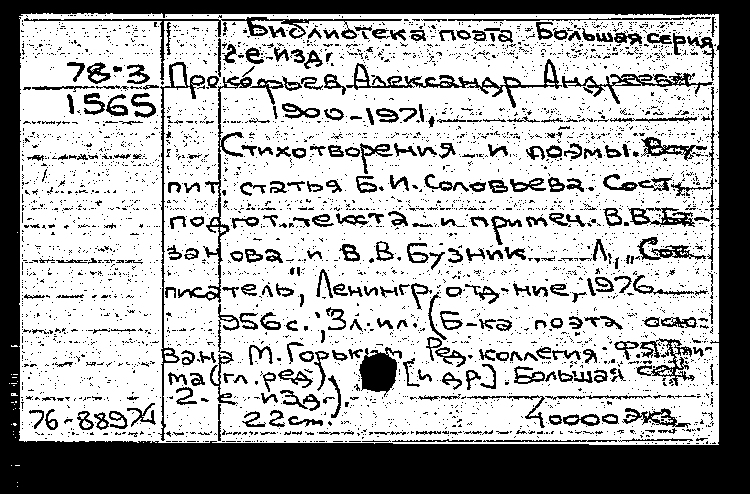 Библиотека поэта Большая серия.
2-е изд.
78-3 Прокофьев, Александр Андреевич,
1565 1900-1971.
Стихотворения и поэмы. Всту-
пит. статья Б.И.Соловьева. Сост.,
подгот. текста и примеч. В.В.Ба-
занова и В.В.Бузник. Л., „Сов.
писатель", Ленингр. отд-ние, 1976.
956с.; 3л.ил. (Б-ка поэта осно-
вана М.Горьким. Ред. коллегия: Ф.Я.Прий-
ма (гл.ред) [и др.]. Большая сер.
2-е изд.).
76-88974 22см. 40000экз.